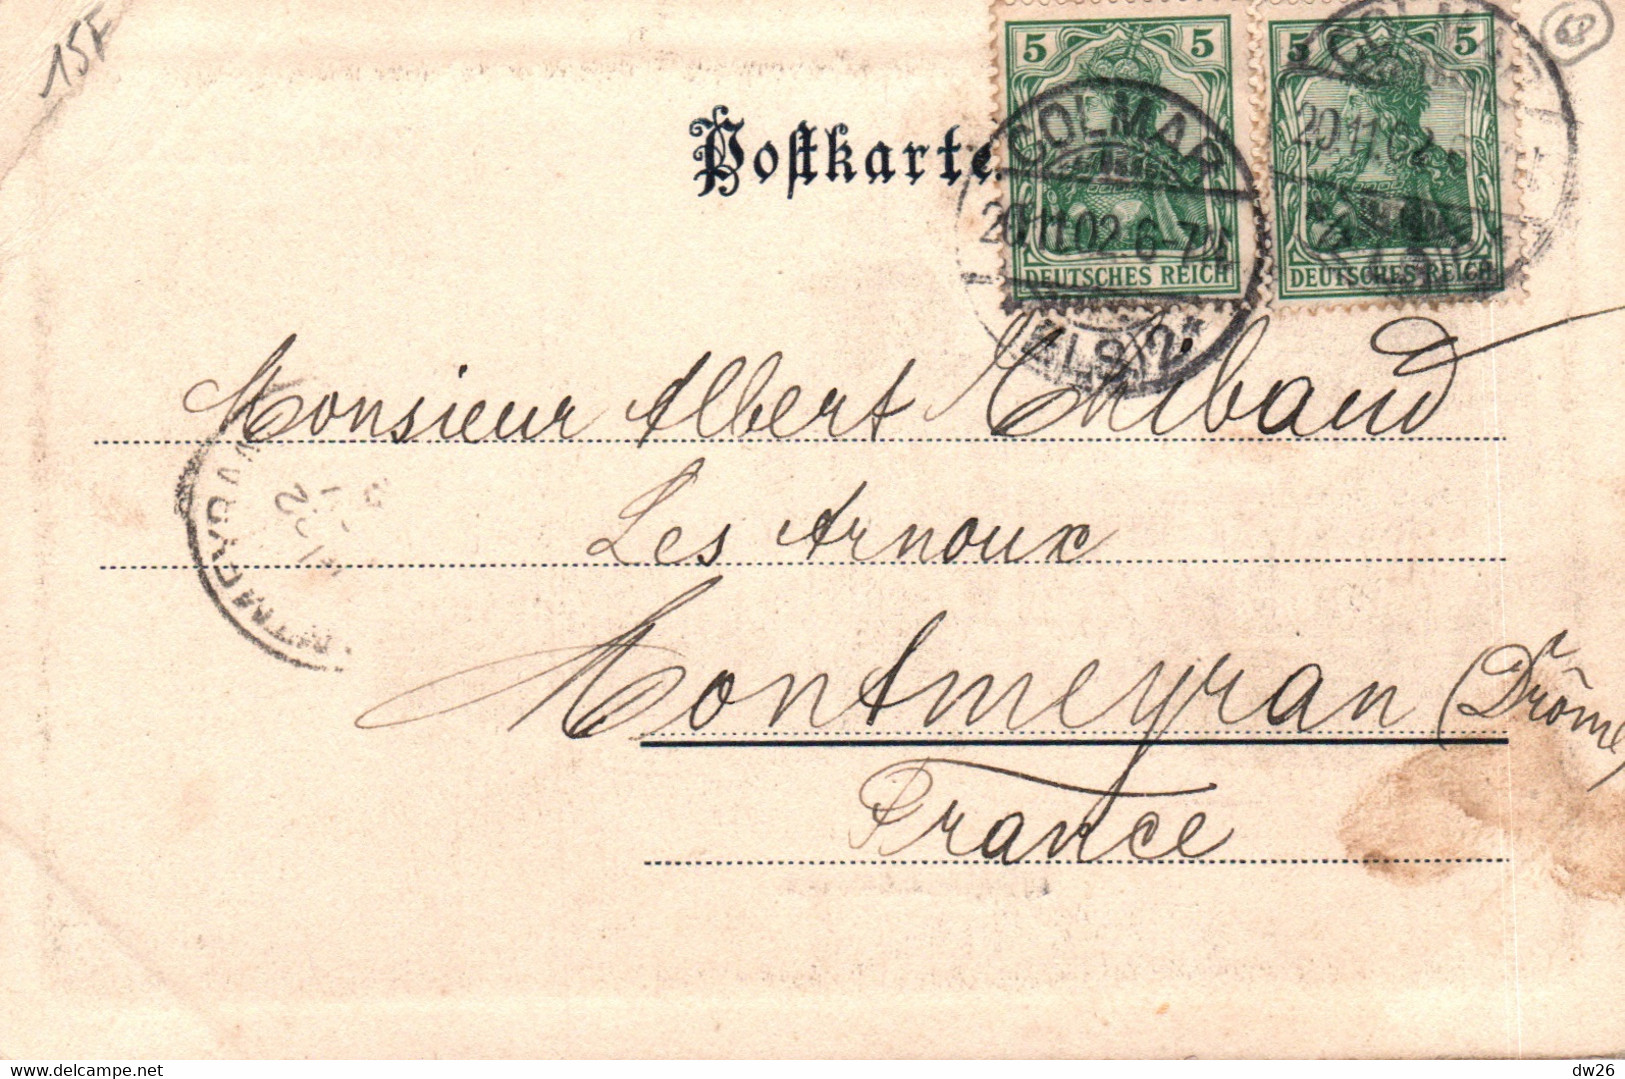 15F
68
5 5 5 5
Postkarte.
COLMAR
20.11.02. 6-7N.
(ELS.) 2*
DEUTSCHES REICH DEUTSCHES REICH
Monsieur Albert Thibaud
Les Arnoux
Montmeyran (Drôme)
France
delcampe.net
dw26